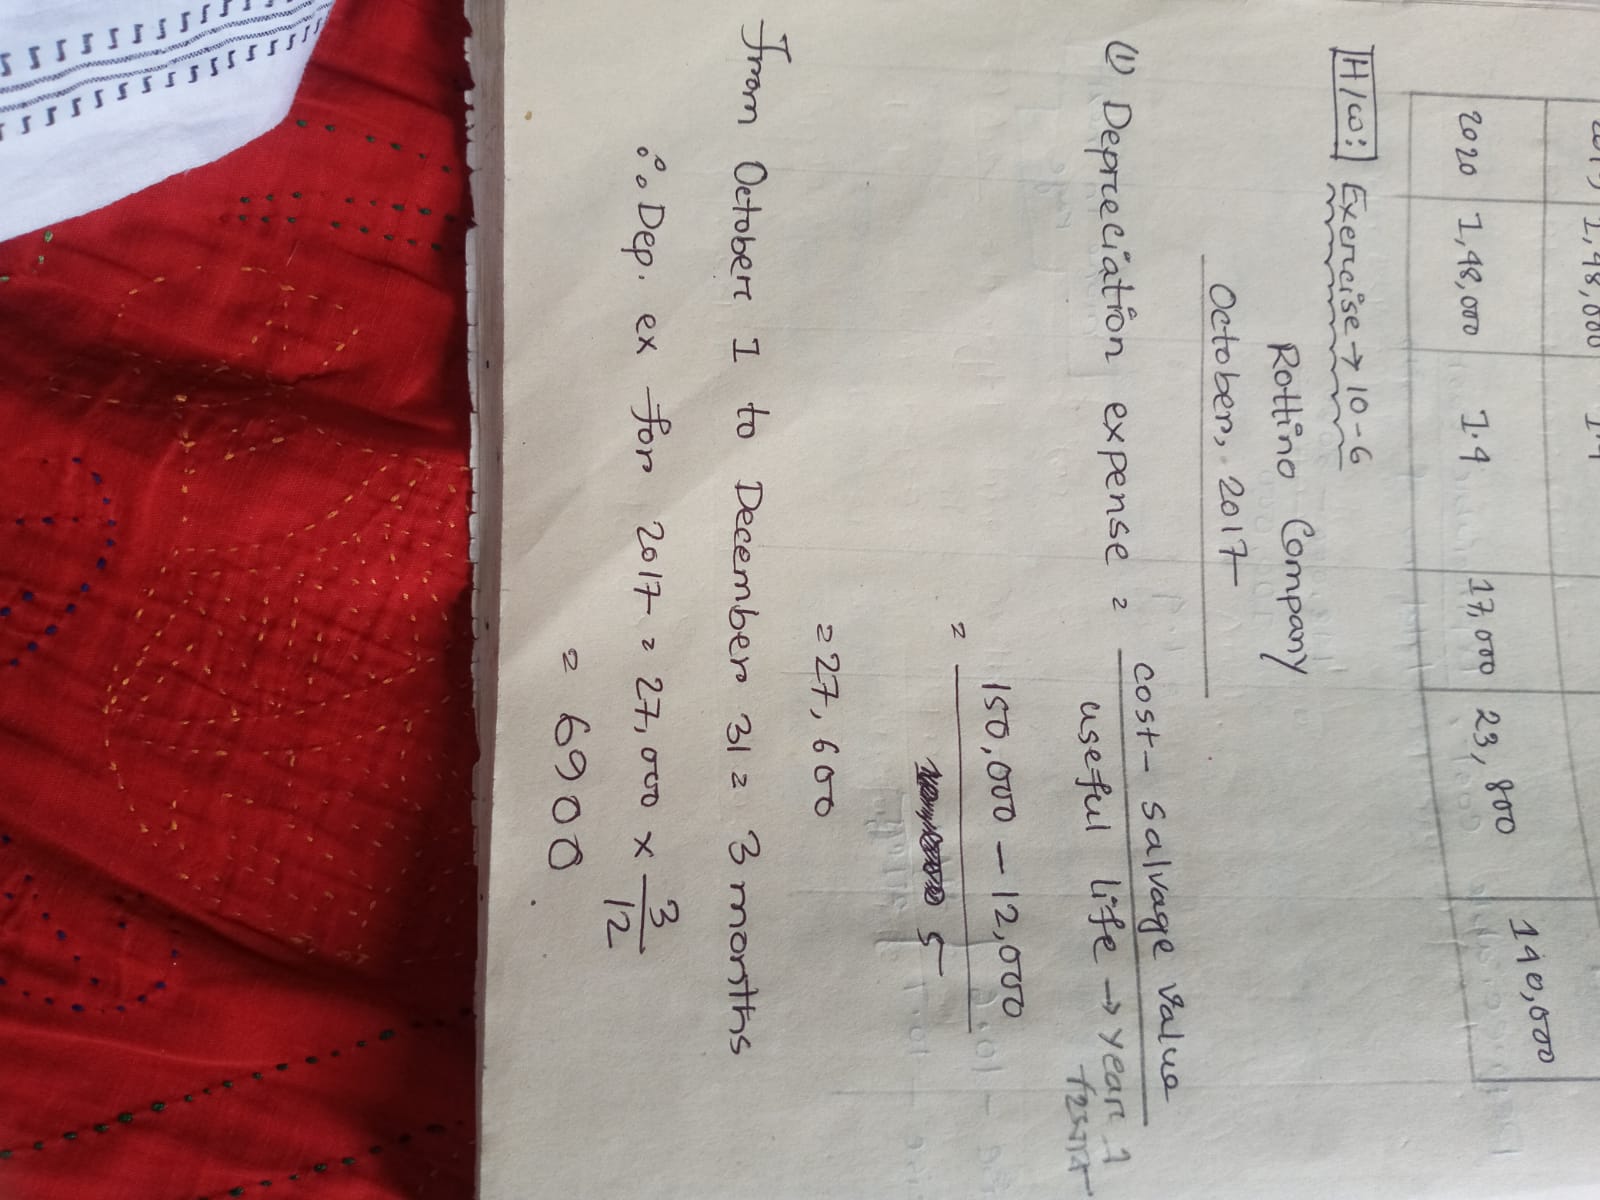 1,48,000
2020 1,48,000 1.4 17,000 23,800 140,000
H/W: Exercise → 10-6
Rottino Company
October, 2017
(1) Depreciation expense = cost - salvage value
useful life → year
= 150,000 - 12,000
5
= 27,600
From October 1 to December 31 = 3 months
∴ Dep. ex for 2017 = 27,000 × 3/12
= 6900